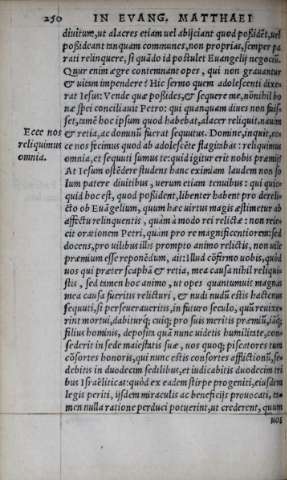 250 IN EVANG. MATTHAEI
diuitum, ut alacres etiam uel abijciant quod possidẽt, uel
possideant tanquam communes, non proprias, semper pa
rati relinquere, si quãdo id postulet Euangelij negociũ.
Quur enim ægre contemnant opes, qui non grauantur
& uitam impendere? Hic sermo quem adolescenti dixe-
rat Iesus: Vende quæ possides, & sequere me, nõnihil bo
næ spei conciliauit Petro: qui quanquam diues non fuis,
set, tamẽ hoc ipsum quod habebat, alacer reliquit. nauim
Ecce nos
& retia, ac donunũ fuerat sequutus. Domine, inquit, ec-
reliquimus
ce nos fecimus quod ab adolescẽte flagitabas: reliquimus
omnia.
omnia, et sequuti sumus te: quid igitur erit nobis præmij?
At Iesum ostẽdere studens hanc eximiam laudem non so
lum patere diuitibus, uerum etiam tenuibus: qui quic-
quid hoc est, quod possident, libenter habent pro dereli-
cto ob Euãgelium, quam hæc uirtus magis æstimetur ab
affectu relinquentis, quàm à modo rei relictæ: non reie-
cit orationem Petri, quasi pro re magnificentiorem: sed
docens, pro uilibus illis prompto animo relictis, non uile
præmium esse reponẽdum, ait: Illud cõfirmo uobis, quòd
uos qui præter scaphã & retia, mea causa nihil reliqui-
stis, sed tamen hoc animo, ut opes quantumuis magnas
mea causa fueritis relicturi, & nudi nudũ estis hactenus
sequuti, si perseueraueritis, in futuro seculo, quũ reuixe-
rint mortui, dabiturq; cuiq; pro suis meritis præmiũ, iãq;
filius hominis, deposita quã nunc uidetis humilitate, con-
sederit in sede maiestatis suæ, uos quoq; piscatores tum
cõsortes honoris, qui nunc estis consortes afflictionũ, se-
debitis in duodecim sedilibus, et iudicabitis duodecim tri
bus Israëliticas: quòd ex eadem stirpe progeniti, eiusdem
legis periti, ijsdem miraculis ac beneficijs prouocati, ta-
men nulla ratione perduci potuerint, ut crederent, quum
uos